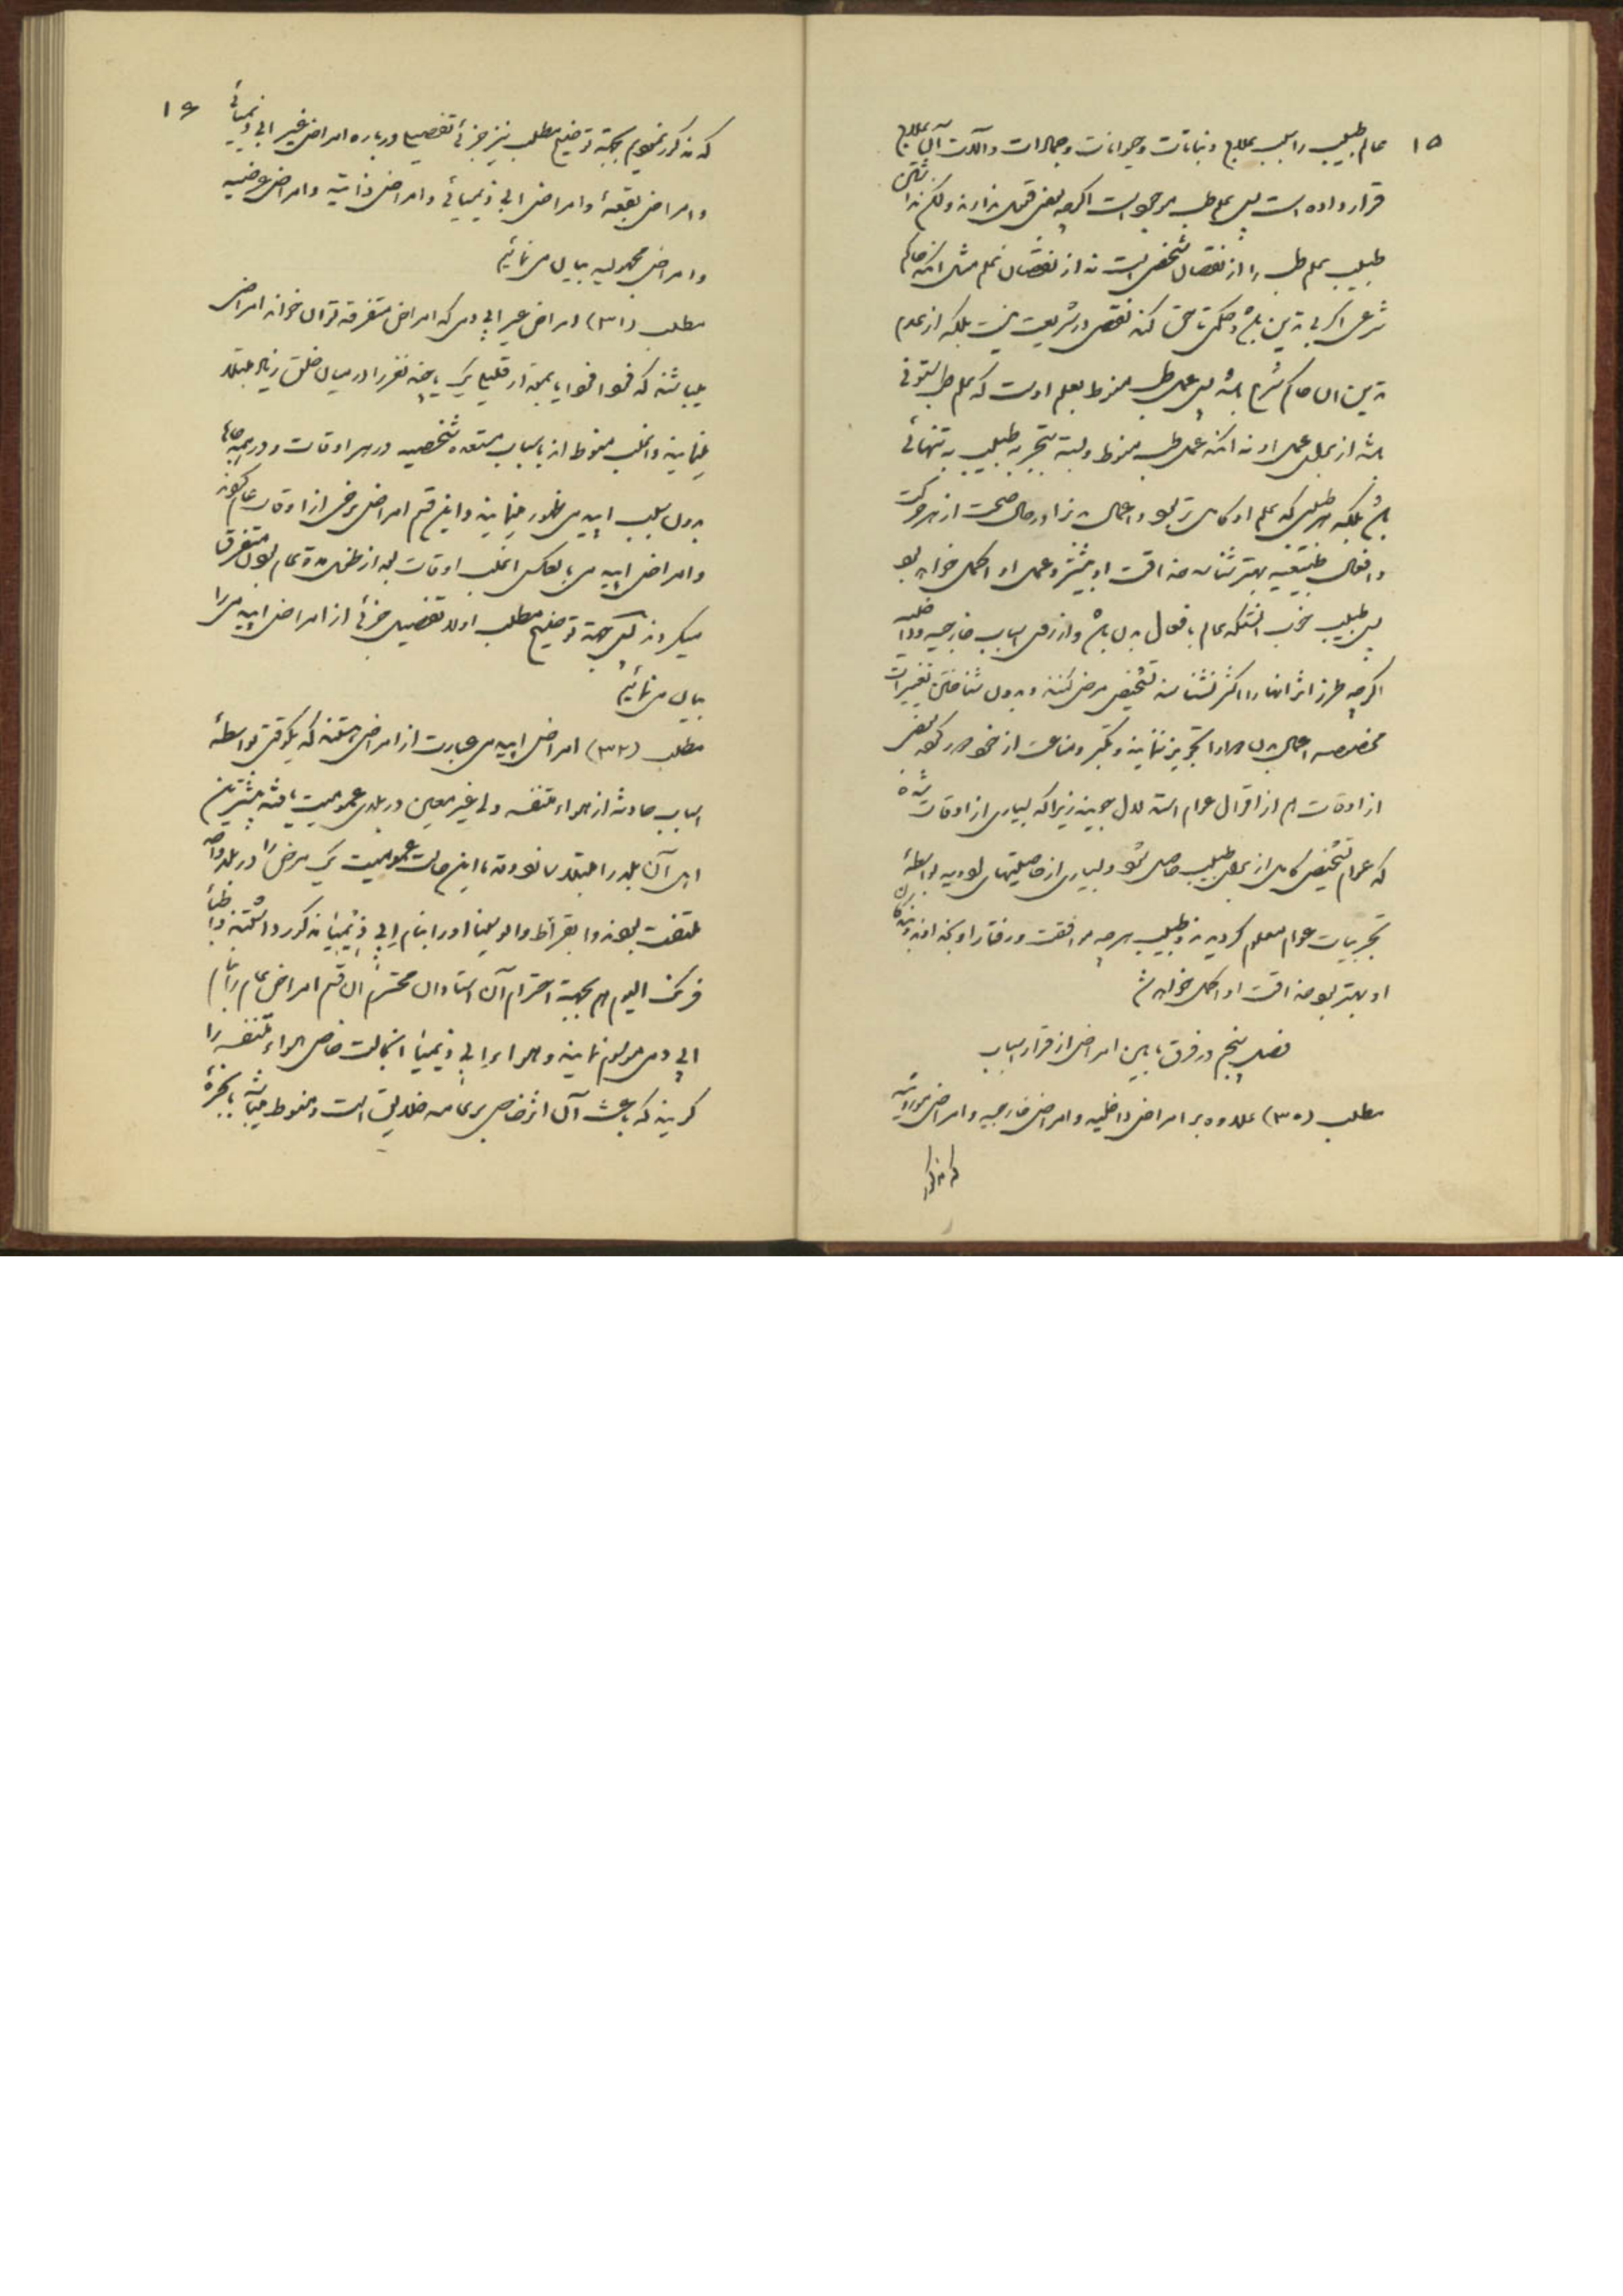 ۱۵
عالم طبیب را سبب بعلاج و نباتات و حیوانات و جمادات و آلات آن بعلاج
قرار داده است پس علم طب مرحمتی است اگرچه بعضی قبول ندارند ولکن نداشتن
طبیب علم طب را از نقصان شخص است نه از نقصان علم مثل آنکه حاکم
شرعی اگر بی تدین باشد و حکمی ناحق کند نقص در شریعت نیست بلکه از عدم
تدین آن حاکم شرع باشد پس عمل طب منوط بعلم اوست که علم طب
باشد از برای عمل او نه آنکه عمل طب منوط و بسته بتجربه طبیب به تنهائی
باشد بلکه هر طبیبی که علم او کامل تر بود و اعمال بدن را در حال صحت از هر حرکت
و افعال طبیعیه بهتر شناسد حذاقت او بیشتر و عمل او اکمل خواهد بود
پس طبیب خوب آنستکه عالم بافعال بدن باشد و از روی اسباب خارجیه و داخلیه
اگرچه طرز اثر آنها را اکثر نشناسد تشخیص مرض کند و بدون شناختن تغییرات
مخصوصه اعمال بدن دوا را تجویز ننمایند و تکبر و مناعت از خود دور کند بعضی
از اوقات هم از اقوال عوام استدلال جویند زیرا که بسیاری از اوقات شده
که عوام تشخیص کامل از برای طبیب حاصل شود و بسیاری از خاصیتهای ادویه بواسطهٔ
تجربیات عوام معلوم گردیده و طبیب هرچه موافقت و رفتار او بخداوند و بندگان
او بهتر بود حذاقت او اکمل خواهد شد
فصل پنجم در فرق مابین امراض از قرار اسباب
مطلب (۳۰) علاوه بر امراض داخلیه و امراض خارجیه و امراض موروثیه
که مذکور
۱۶
که مذکور نمودیم بجهة توضیح مطلب نیز جزئی تفصیل درباره امراض غیر اپی دیمیائی
و امراض بقعهٔ و امراض اپی دیمیائی و امراض ذاتیه و امراض عرضیه
و امراض مجهولیه بیان می نمائیم
مطلب (۳۱) امراض غیر اپی دمی که امراض متفرقه توان خواند امراضی
میباشند که فردا فردا بمقدار قلیل یک یا چند نفر را در میان خلق زیاد مبتلا
مینمایند و اغلب منوط اند باسباب مستعده شخصیه در هر اوقات و در همه جاها
بدون سبب اپیدمی ظهور مینمایند و این قسم امراض برخی از اوقات عام گردند
و امراض اپیدمی بالعکس اغلب اوقات بعد از طول مدة عام بودن متفرق
میگردند لکن جهة توضیح مطلب اولا تفصیل جزئی از امراض اپیدمی را
بیان می نمائیم
مطلب (۳۲) امراض اپیدمی عبارت از امراضی هستند که یکوقتی بواسطهٔ
اسباب حادثه از هواء متنفسه ولی غیر معین در بلدی عمومیت یافته بیشترین
اهل آن بلد را مبتلا سازد و قدما این حالت عمومیت یک مرض را در بلد واحد
ملتفت بودند و ابقراط و ابو سینا او را بنام اپی دیمیا مذکور داشتند و اطباء
فرنگ الیوم هم بجهة احترام آن استادان محترم آن قسم امراض عام را بنام
اپی دمی موسوم نمایند و هواء اپی دیمیا آنحالت خاص هواء متنفسه را
گویند که باعث آن اثر خاص بر عامه خلایق است و منوط میباشد بابخرهٔ